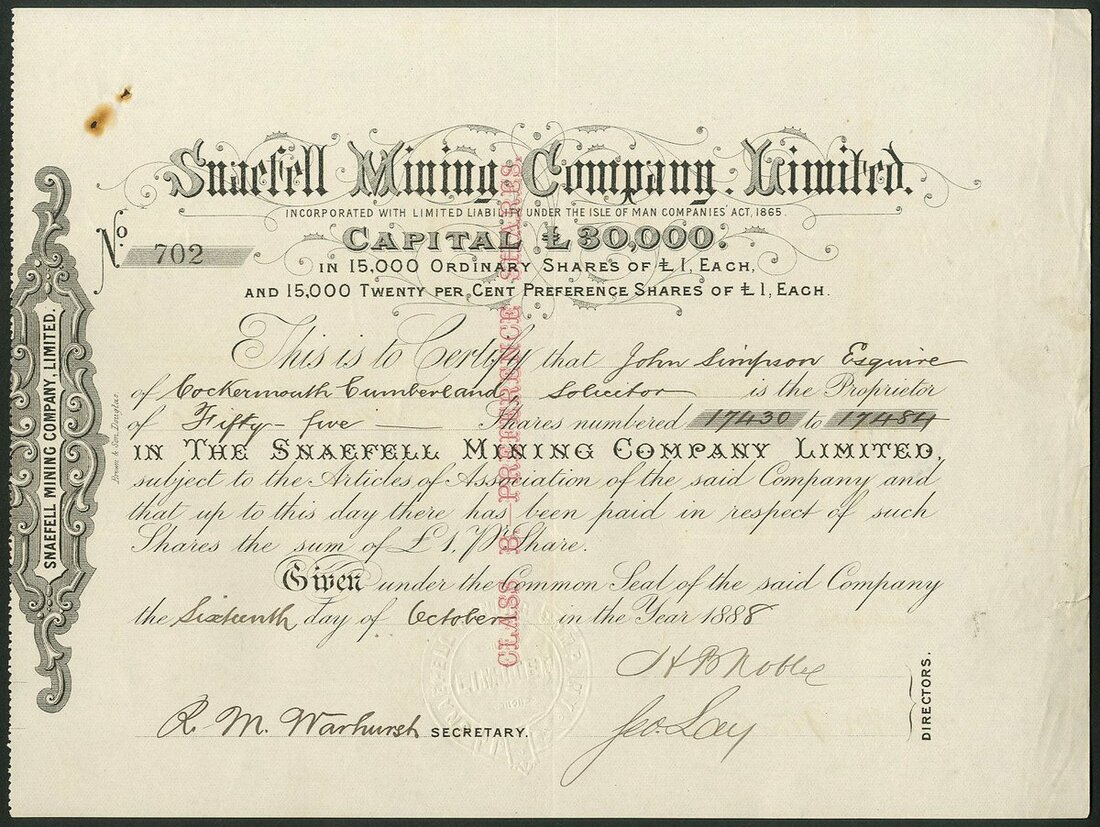 Snaefell Mining Company. Limited.
INCORPORATED WITH LIMITED LIABILITY UNDER THE ISLE OF MAN COMPANIES' ACT, 1865.
No. 702
CAPITAL £30,000.
IN 15,000 ORDINARY SHARES OF £1, EACH,
AND 15,000 TWENTY PER CENT PREFERENCE SHARES OF £1, EACH.
This is to Certify that John Simpson Esquire
of Cockermouth Cumberland, Solicitor is the Proprietor
of Fifty-five Shares numbered 17430 to 17484
IN THE SNAEFELL MINING COMPANY LIMITED,
subject to the Articles of Association of the said Company and
that up to this day there has been paid in respect of such
Shares the sum of £1, Pr Share.
Given under the Common Seal of the said Company
the Sixteenth day of October in the Year 1888
H B Noble
Geo. Lay
DIRECTORS.
R. M. Warhurst SECRETARY.
CLASS B.—PREFERENCE SHARES.
SNAEFELL MINING COMPANY, LIMITED.
Brown & Son, Douglas
LIMITED